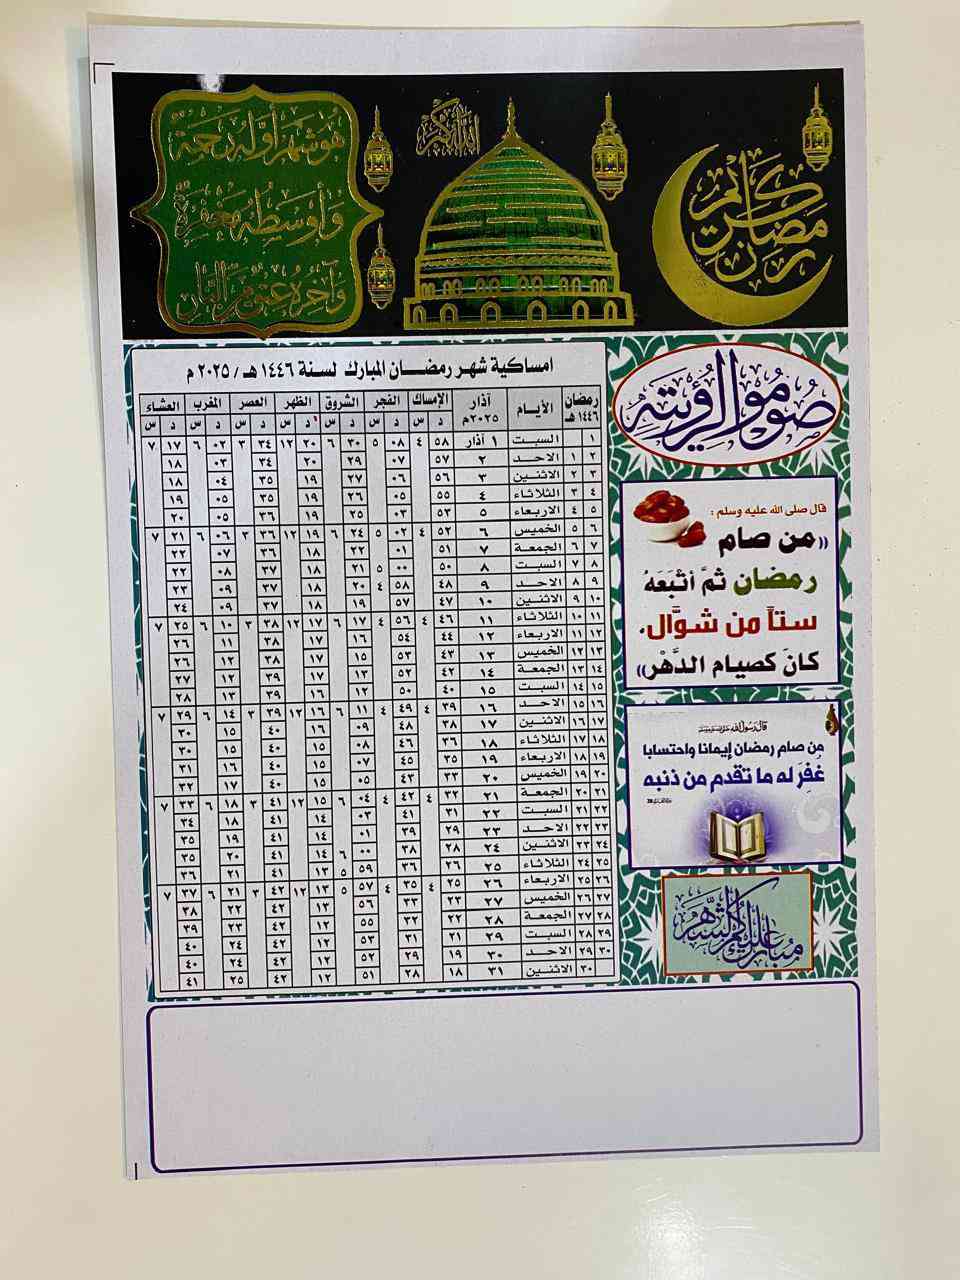 رمضان كريم
الله أكبر
هو شهر أوله رحمة
وأوسطه مغفرة
وآخره عتق من النار
امساكية شهر رمضان المبارك لسنة ١٤٤٦ هـ / ٢٠٢٥ م
رمضان ١٤٤٦ هـ الأيام آذار ٢٠٢٥م الإمساك الفجر الشروق الظهر العصر المغرب العشاء
د س د س د س د س د س د س د س
١ السبت ١ آذار ٥٨ ٤ ٠٨ ٥ ٣٠ ٦ ٢٠ ١٢ ٣٤ ٣ ٠٢ ٦ ١٧ ٧
٢ ١ الاحد ٢ ٥٧ ٠٧ ٢٩ ٢٠ ٣٤ ٠٣ ١٨
٣ ٢ الاثنين ٣ ٥٦ ٠٦ ٢٧ ١٩ ٣٥ ٠٤ ١٨
٤ ٣ الثلاثاء ٤ ٥٥ ٠٥ ٢٦ ١٩ ٣٥ ٠٥ ١٩
٥ ٤ الاربعاء ٥ ٥٣ ٠٣ ٢٥ ١٩ ٣٦ ٠٥ ٢٠
٦ ٥ الخميس ٦ ٥٢ ٤ ٠٢ ٥ ٢٤ ٦ ١٩ ١٢ ٣٦ ٣ ٠٦ ٦ ٢١ ٧
٧ ٦ الجمعة ٧ ٥١ ٠١ ٢٢ ١٨ ٣٦ ٠٧ ٢٢
٨ ٧ السبت ٨ ٥٠ ٠٠ ٥ ٢١ ١٨ ٣٧ ٠٨ ٢٢
٩ ٨ الاحد ٩ ٤٨ ٥٨ ٤ ٢٠ ١٨ ٣٧ ٠٩ ٢٣
١٠ ٩ الاثنين ١٠ ٤٧ ٥٧ ١٩ ١٨ ٣٧ ٠٩ ٢٤
١١ ١٠ الثلاثاء ١١ ٤٦ ٤ ٥٦ ٤ ١٧ ٦ ١٧ ١٢ ٣٨ ٣ ١٠ ٦ ٢٥ ٧
١٢ ١١ الاربعاء ١٢ ٤٤ ٥٤ ١٦ ١٧ ٣٨ ١١ ٢٦
١٣ ١٢ الخميس ١٣ ٤٣ ٥٣ ١٥ ١٧ ٣٨ ١٢ ٢٦
١٤ ١٣ الجمعة ١٤ ٤٢ ٥٢ ١٣ ١٧ ٣٩ ١٢ ٢٧
١٥ ١٤ السبت ١٥ ٤٠ ٥٠ ١٢ ١٦ ٣٩ ١٣ ٢٨
١٦ ١٥ الاحد ١٦ ٣٩ ٤ ٤٩ ٤ ١١ ٦ ١٦ ١٢ ٣٩ ٣ ١٤ ٦ ٢٩ ٧
١٧ ١٦ الاثنين ١٧ ٣٨ ٤٨ ٠٩ ١٦ ٤٠ ١٥ ٣٠
١٨ ١٧ الثلاثاء ١٨ ٣٦ ٤٦ ٠٨ ١٥ ٤٠ ١٥ ٣٠
١٩ ١٨ الاربعاء ١٩ ٣٥ ٤٥ ٠٧ ١٥ ٤٠ ١٦ ٣١
٢٠ ١٩ الخميس ٢٠ ٣٣ ٤٣ ٠٥ ١٥ ٤٠ ١٧ ٣٢
٢١ ٢٠ الجمعة ٢١ ٣٢ ٤ ٤٢ ٤ ٠٤ ٦ ١٥ ١٢ ٤١ ٣ ١٨ ٦ ٣٣ ٧
٢٢ ٢١ السبت ٢٢ ٣١ ٤١ ٠٣ ١٤ ٤١ ١٨ ٣٤
٢٣ ٢٢ الاحد ٢٣ ٢٩ ٣٩ ٠١ ١٤ ٤١ ١٩ ٣٥
٢٤ ٢٣ الاثنين ٢٤ ٢٨ ٣٨ ٠٠ ٦ ١٤ ٤١ ٢٠ ٣٥
٢٥ ٢٤ الثلاثاء ٢٥ ٢٦ ٣٦ ٥٩ ٥ ١٣ ٤١ ٢١ ٣٦
٢٦ ٢٥ الاربعاء ٢٦ ٢٥ ٤ ٣٥ ٤ ٥٧ ٥ ١٣ ١٢ ٤٢ ٣ ٢١ ٦ ٣٧ ٧
٢٧ ٢٦ الخميس ٢٧ ٢٣ ٣٣ ٥٦ ١٣ ٤٢ ٢٢ ٣٨
٢٨ ٢٧ الجمعة ٢٨ ٢٢ ٣٢ ٥٥ ١٢ ٤٢ ٢٣ ٣٩
٢٩ ٢٨ السبت ٢٩ ٢١ ٣١ ٥٣ ١٢ ٤٢ ٢٤ ٤٠
٣٠ ٢٩ الاحد ٣٠ ١٩ ٢٩ ٥٢ ١٢ ٤٢ ٢٤ ٤٠
٣٠ الاثنين ٣١ ١٨ ٢٨ ٥١ ١٢ ٤٢ ٢٥ ٤١
صوموا لرؤيته
قال صلى الله عليه وسلم :
«من صام
رمضان ثمَّ أتْبَعَهُ
ستاً من شوَّال،
كانَ كصيام الدَّهْر»
قال رسول الله
من صام رمضان إيمانا واحتسابا
غُفِرَ له ما تقدم من ذنبه
مبارك عليكم الشهر